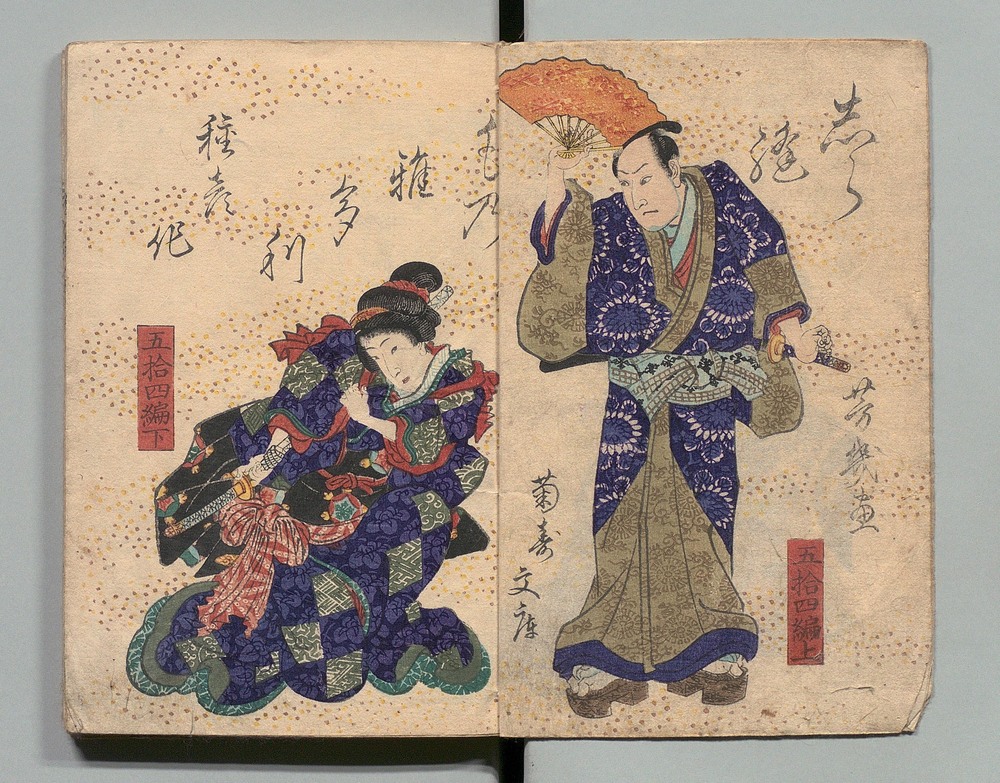 志ら
縫
芳幾画
五拾四編上
菊寿
文庫
毛乃
雅
多
利
種彦
作
五拾四編下